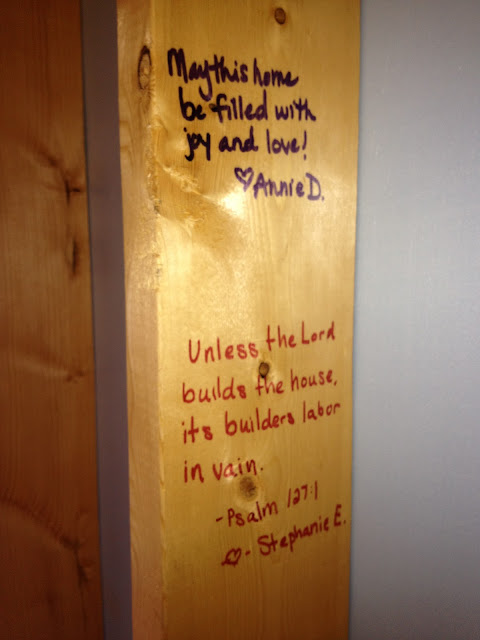 May this home
be filled with
joy and love!
♡Annie D.
Unless the Lord
builds the house,
its builders labor
in vain.
-Psalm 127:1
♡- Stephanie E.